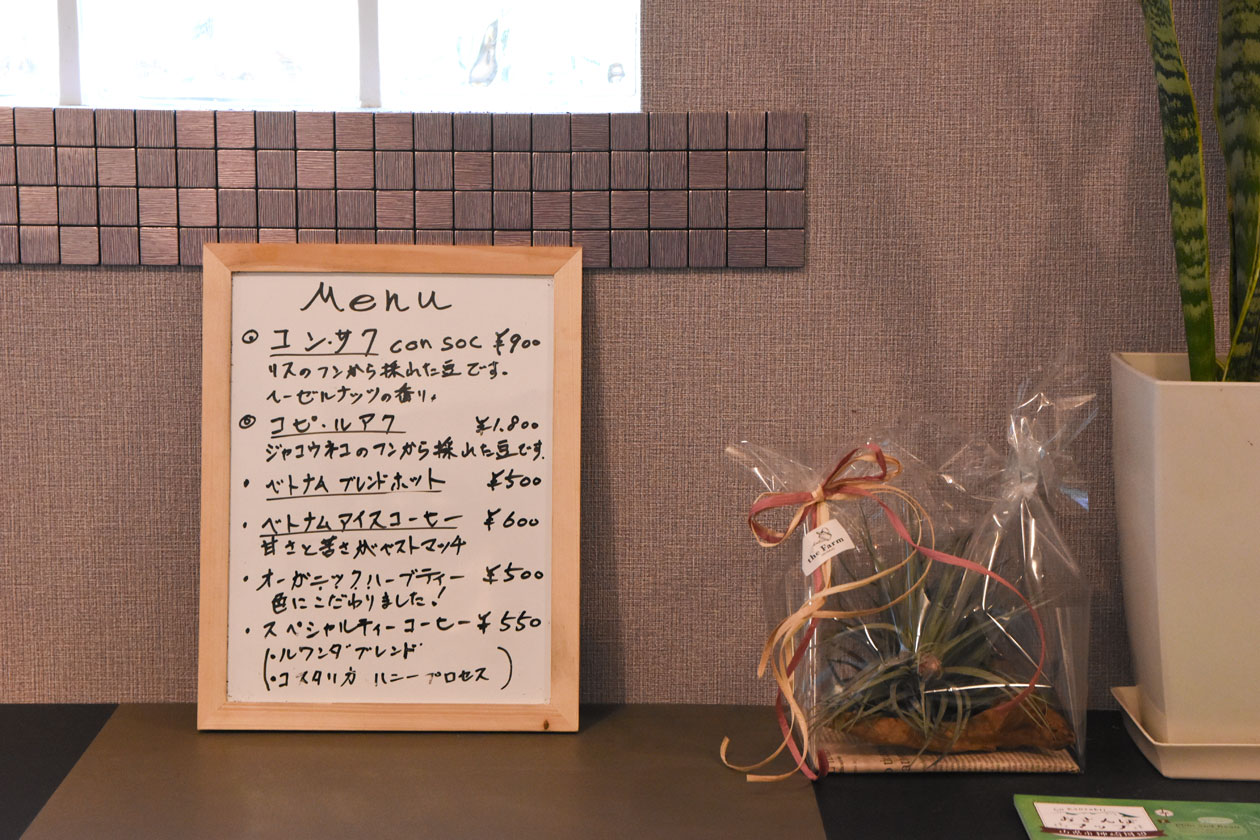 Menu
◎ コン・サク con soc ¥900
リスのフンから採れた豆です。
ヘーゼルナッツの香り。
◎ コピ・ルアク ¥1.800
ジャコウネコのフンから採れた豆です.
・ベトナム ブレンドホット ¥500
・ベトナムアイスコーヒー ¥600
甘さと苦さがベストマッチ
・オーガニックハーブティー ¥500
色にこだわりました!
・スペシャルティーコーヒー ¥550
(・ルワンダブレンド
・コスタリカ ハニープロセス)
the Farm
おさんぽ
マップ